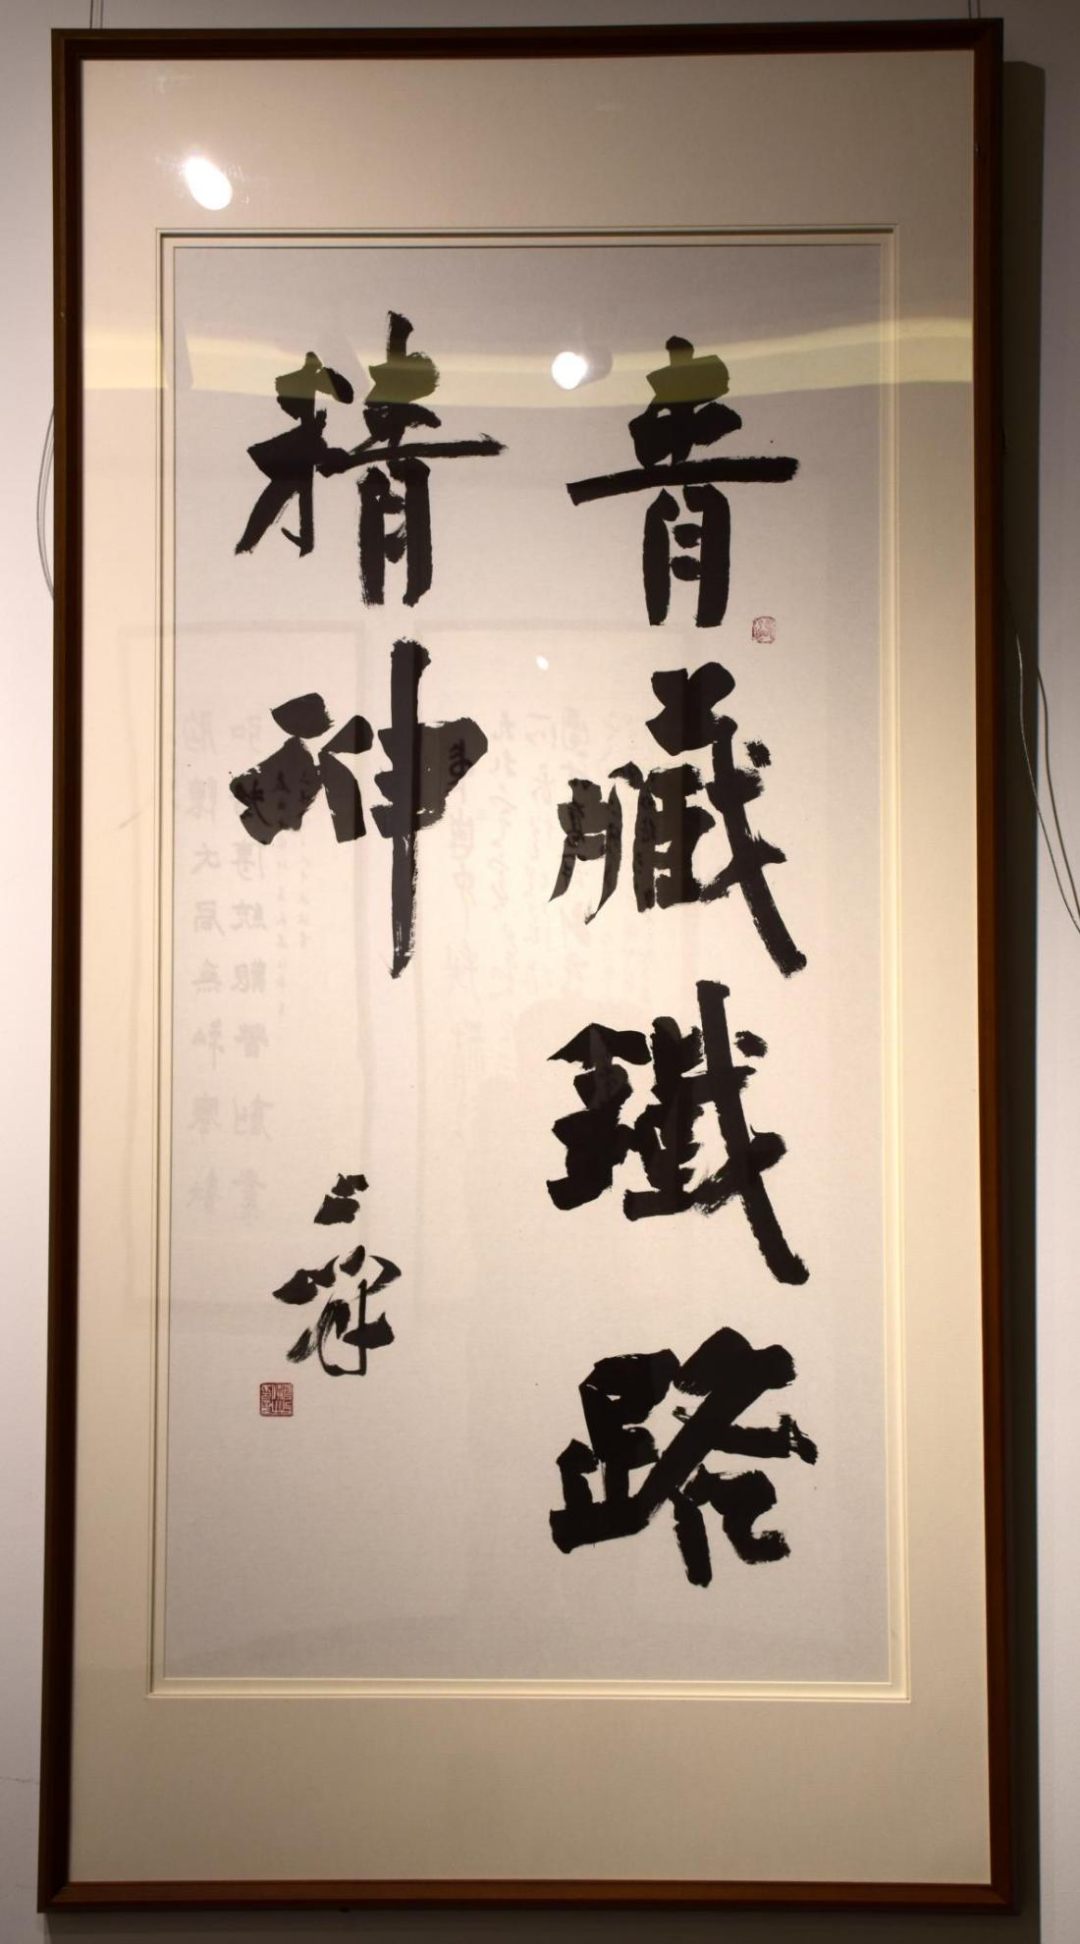 青藏鐵路
精神